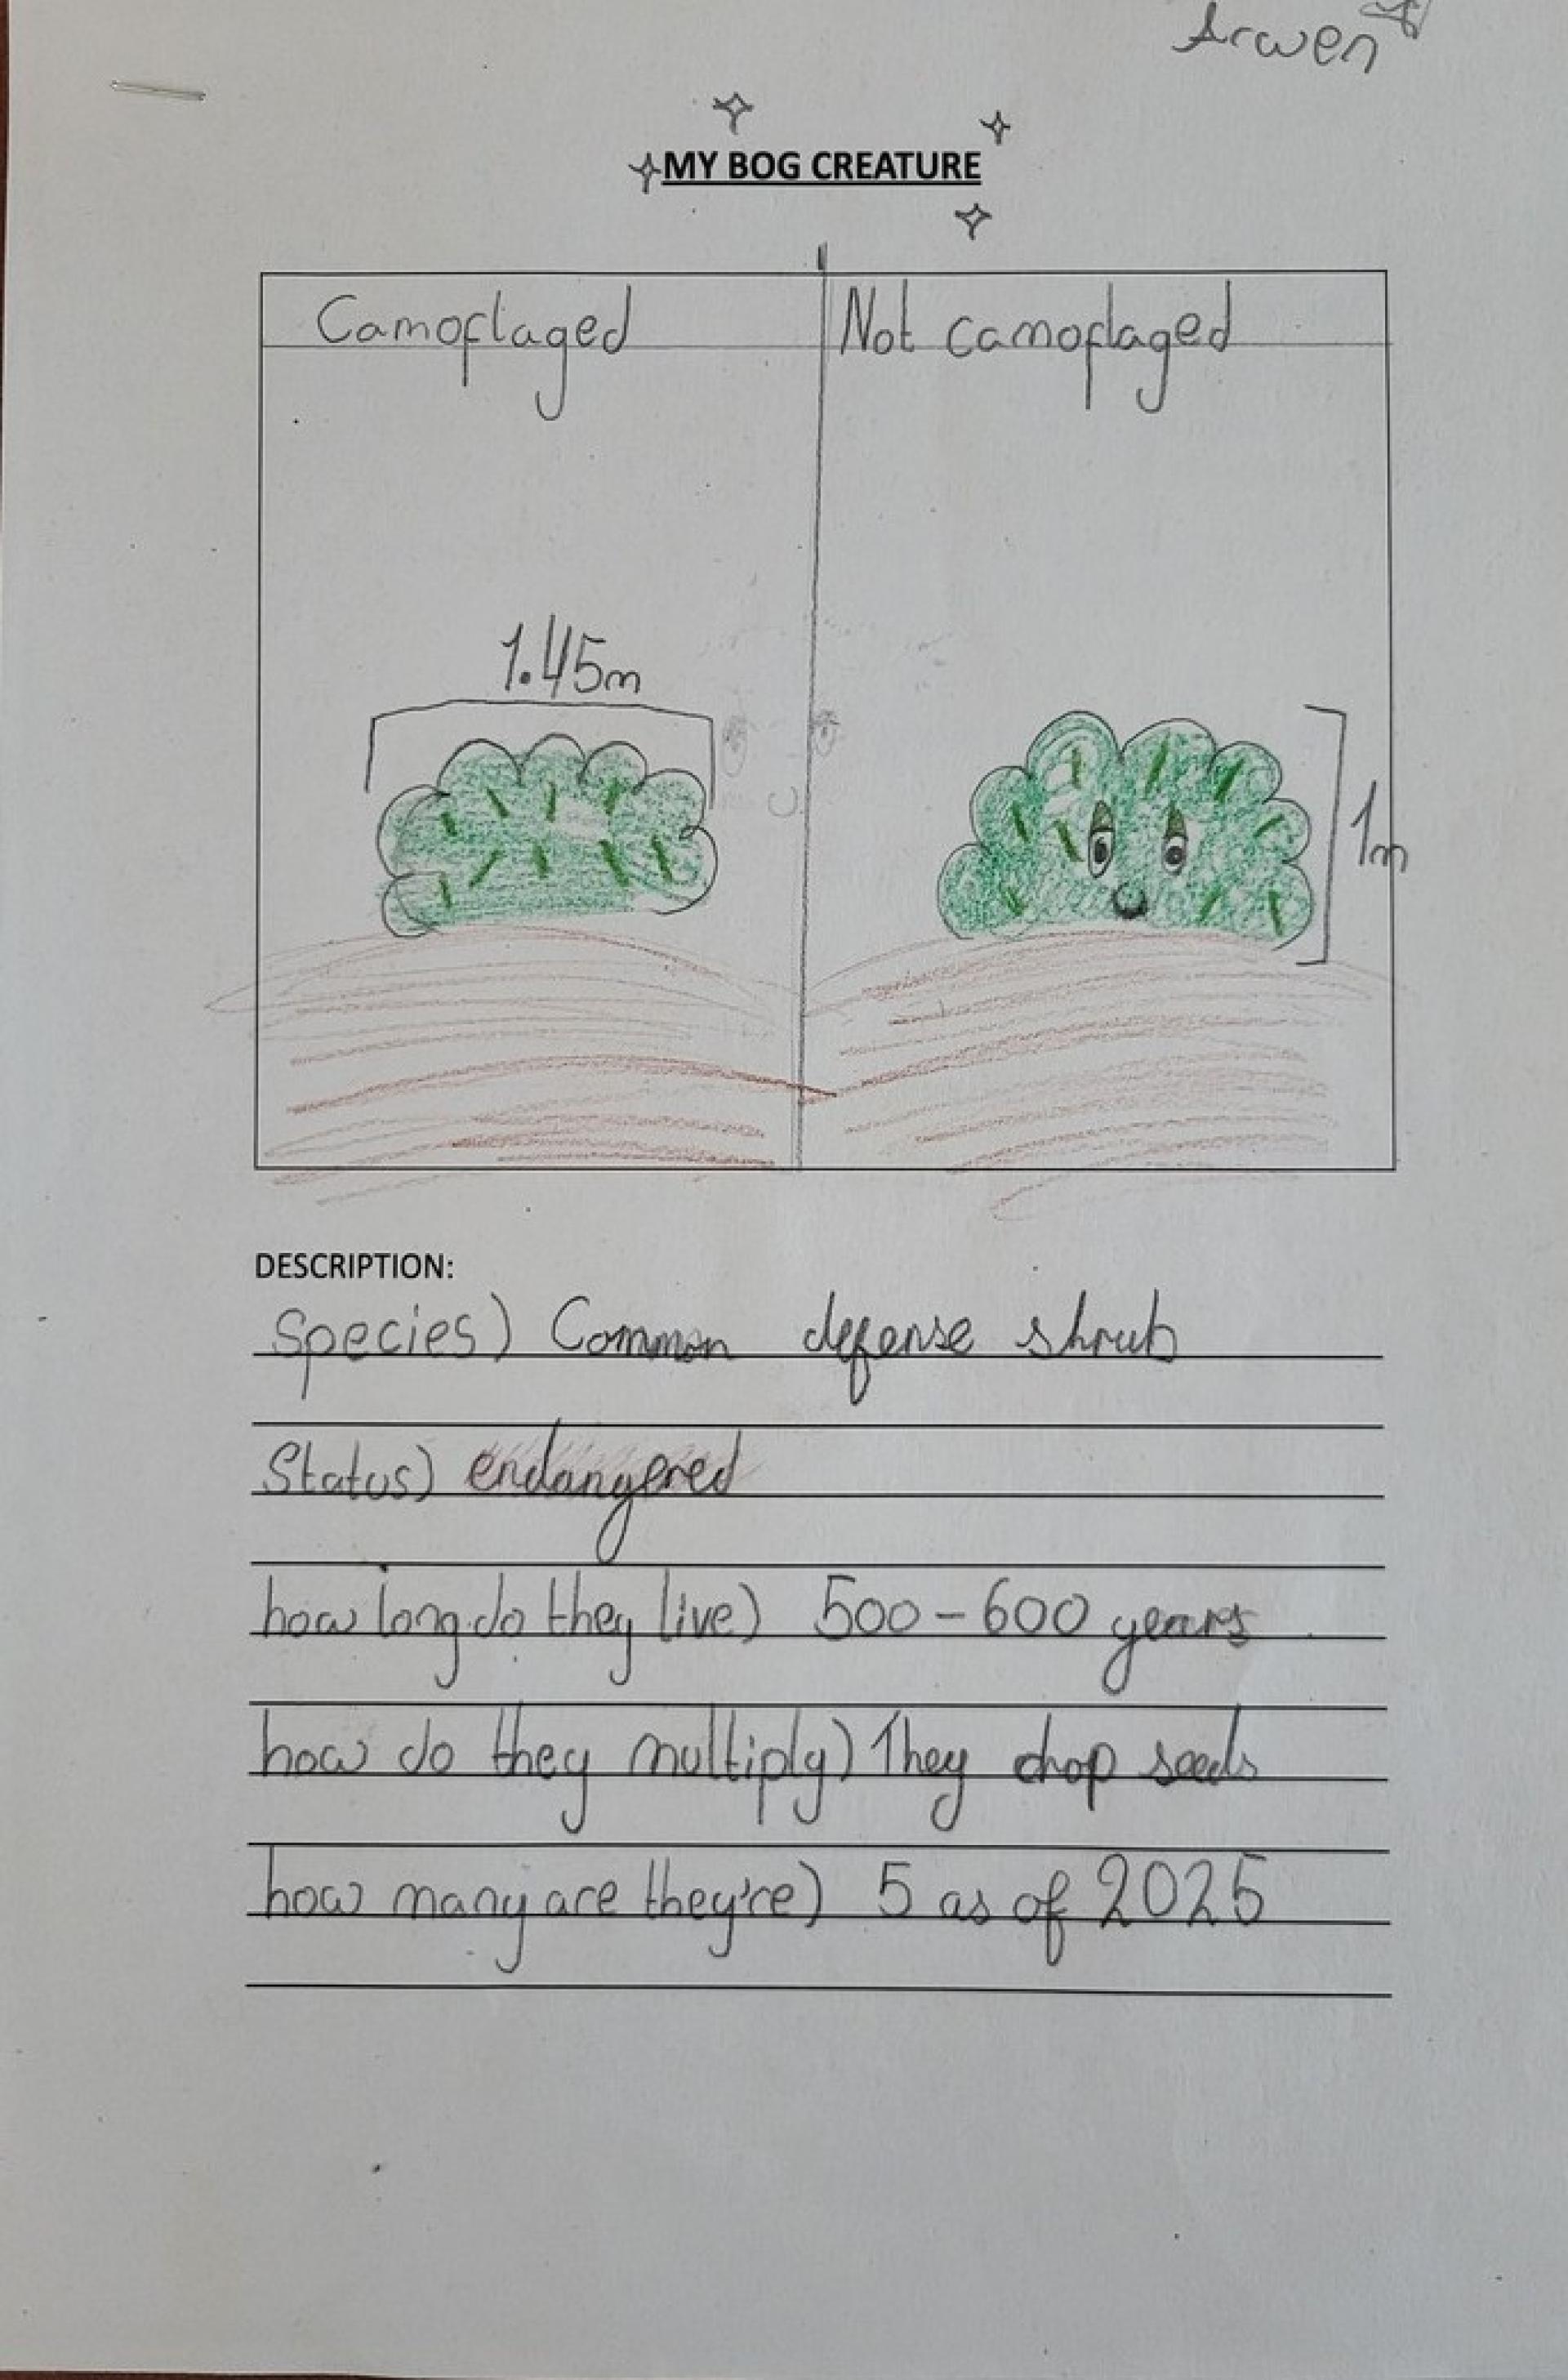 Arwen
MY BOG CREATURE
Camoflaged
Not camoflaged
1.45m
1m
DESCRIPTION:
Species) Common defense shrub
Status) endangered
how long do they live) 500-600 years
how do they multiply) They drop seeds
how many are they're) 5 as of 2025